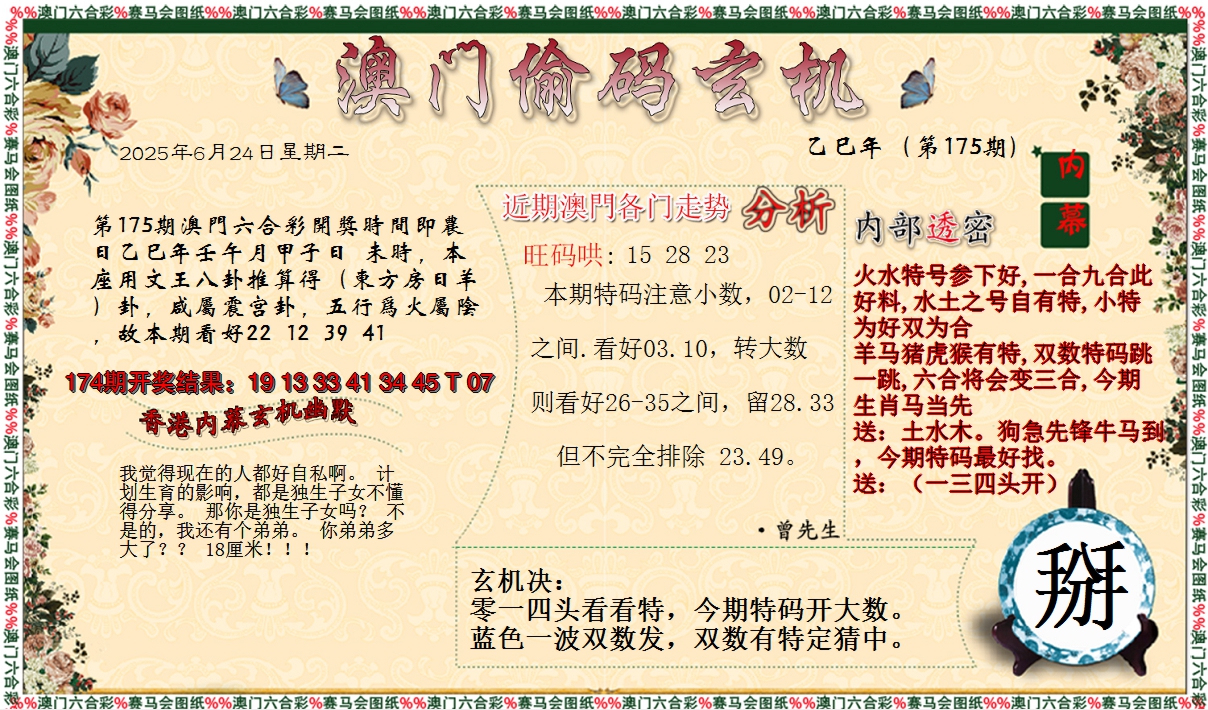 %%澳门六合彩%赛马会图纸%%澳门六合彩%赛马会图纸%%澳门六合彩%赛马会图纸%%澳门六合彩%赛马会图纸%%澳门六合彩%赛马会图纸%%澳门六合彩%赛马会图纸%%
澳门偷码玄机
2025年6月24日星期二
乙巳年（第175期）
内幕
第175期澳門六合彩開獎時間即農
日乙巳年壬午月甲子日 未時，本
座用文王八卦推算得（東方房日羊
）卦，咸屬震宮卦，五行爲火屬陰
，故本期看好22 12 39 41
174期开奖结果：19 13 33 41 34 45 T 07
香港内幕玄机幽默
我觉得现在的人都好自私啊。 计
划生育的影响，都是独生子女不懂
得分享。 那你是独生子女吗？ 不
是的，我还有个弟弟。 你弟弟多
大了？？ 18厘米！！！
近期澳門各门走势 分析
旺码哄: 15 28 23
本期特码注意小数，02-12
之间.看好03.10，转大数
则看好26-35之间，留28.33
但不完全排除 23.49。
·曾先生
内部透密
火水特号参下好,一合九合此
好料,水土之号自有特,小特
为好双为合
羊马猪虎猴有特,双数特码跳
一跳,六合将会变三合,今期
生肖马当先
送：土水木。狗急先锋牛马到
，今期特码最好找。
送：（一三四头开）
玄机决：
零一四头看看特，今期特码开大数。
蓝色一波双数发，双数有特定猜中。
掰
%%澳门六合彩%赛马会图纸%%澳门六合彩%赛马会图纸%%澳门六合彩%赛马会图纸%%澳门六合彩%赛马会图纸%%澳门六合彩%赛马会图纸%%澳门六合彩%赛马会图纸%%